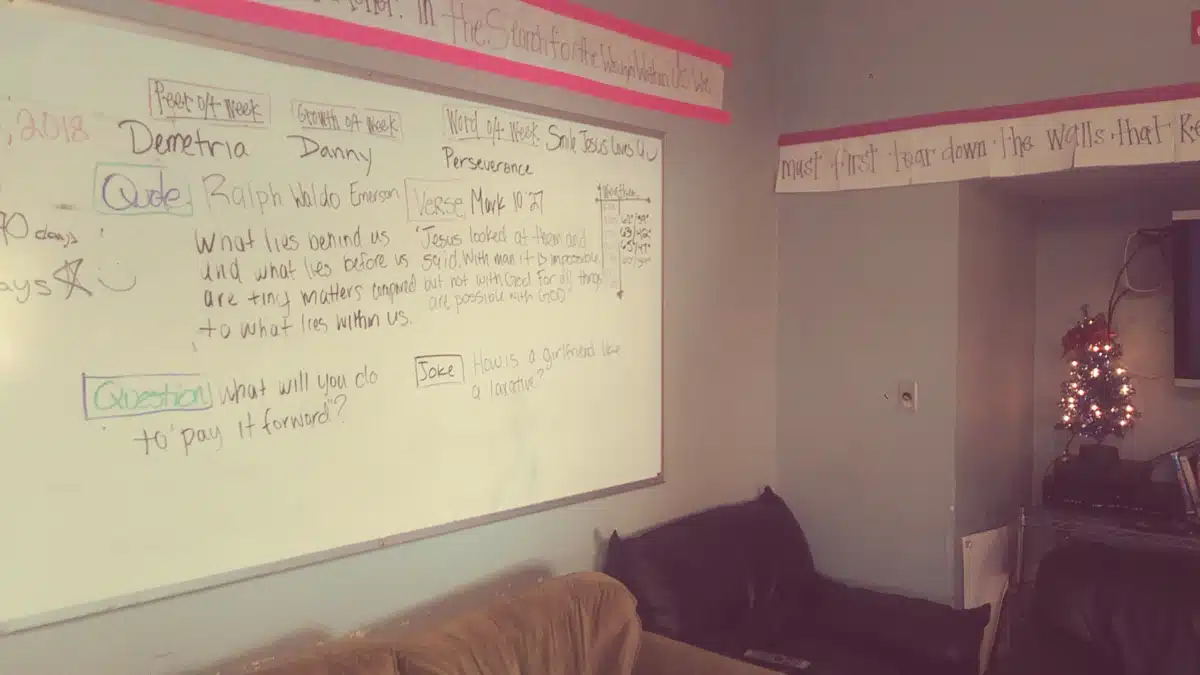 In the Search for the Woman Within Us We
must first tear down the walls that
, 2018
Peer of t Week
Demetria
Growth of t Week
Danny
Word of t Week
Perseverance
Smile Jesus Loves U
90 days
ays
Quote Ralph Waldo Emerson
What lies behind us
and what lies before us
are tiny matters compared
to what lies within us.
Verse Mark 10:27
"Jesus looked at them and
said, With man it is impossible,
but not with God. For all things
are possible with GOD"
Weather
65°/47°
Question What will you do
to "pay it forward"?
Joke How is a girlfriend like
a laxative?